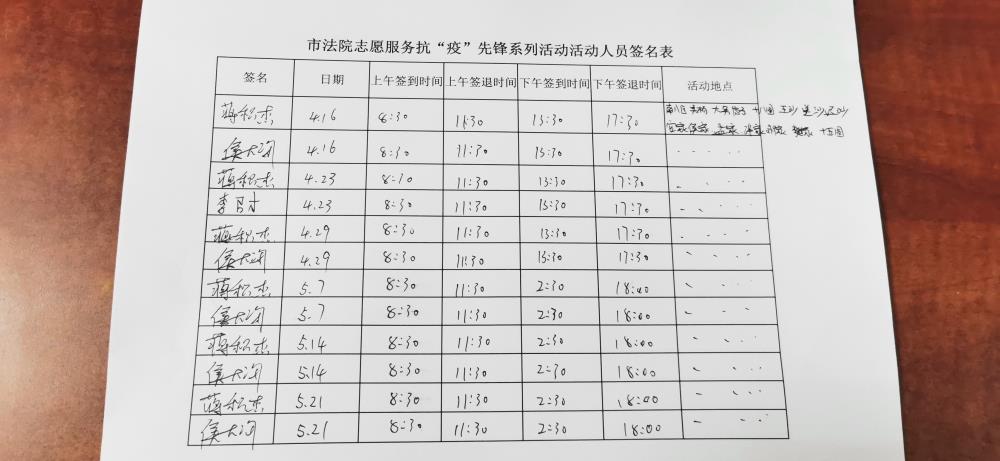 市法院志愿服务抗“疫”先锋系列活动活动人员签名表
签名 日期 上午签到时间 上午签退时间 下午签到时间 下午签退时间 活动地点
蒋积杰 4.16 8:30 11:30 13:30 17:30
侯大询 4.16 8:30 11:30 13:30 17:30
蒋积杰 4.23 8:30 11:30 13:30 17:30
李 4.23 8:30 11:30 13:30 17:30
蒋积杰 4.29 8:30 11:30 13:30 17:30
侯大询 4.29 8:30 11:30 13:30 17:30
蒋积杰 5.7 8:30 11:30 2:30 18:00
侯大询 5.7 8:30 11:30 2:30 18:00
蒋积杰 5.14 8:30 11:30 2:30 18:00
侯大询 5.14 8:30 11:30 2:30 18:00
蒋积杰 5.21 8:30 11:30 2:30 18:00
侯大询 5.21 8:30 11:30 2:30 18:00